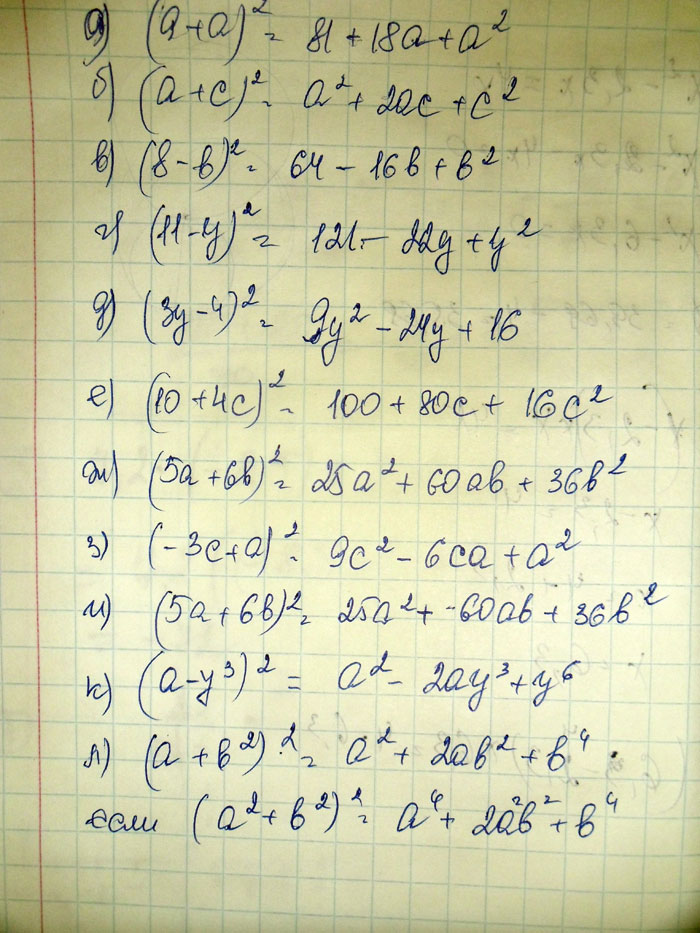 а) (9+a)² = 81 + 18a + a²
б) (a+c)² = a² + 2ac + c²
в) (8-в)² = 64 - 16в + в²
г) (11-y)² = 121 - 22y + y²
д) (3y-4)² = 9y² - 24y + 16
е) (10+4c)² = 100 + 80c + 16c²
ж) (5a+6в)² = 25a² + 60aв + 36в²
з) (-3c+a)² = 9c² - 6ca + a²
и) (5a+6в)² = 25a² + -60aв + 36в²
к) (a-y³)² = a² - 2ay³ + y⁶
л) (a+в²)² = a² + 2aв² + в⁴
если (a²+в²)² = a⁴ + 2a²в² + в⁴